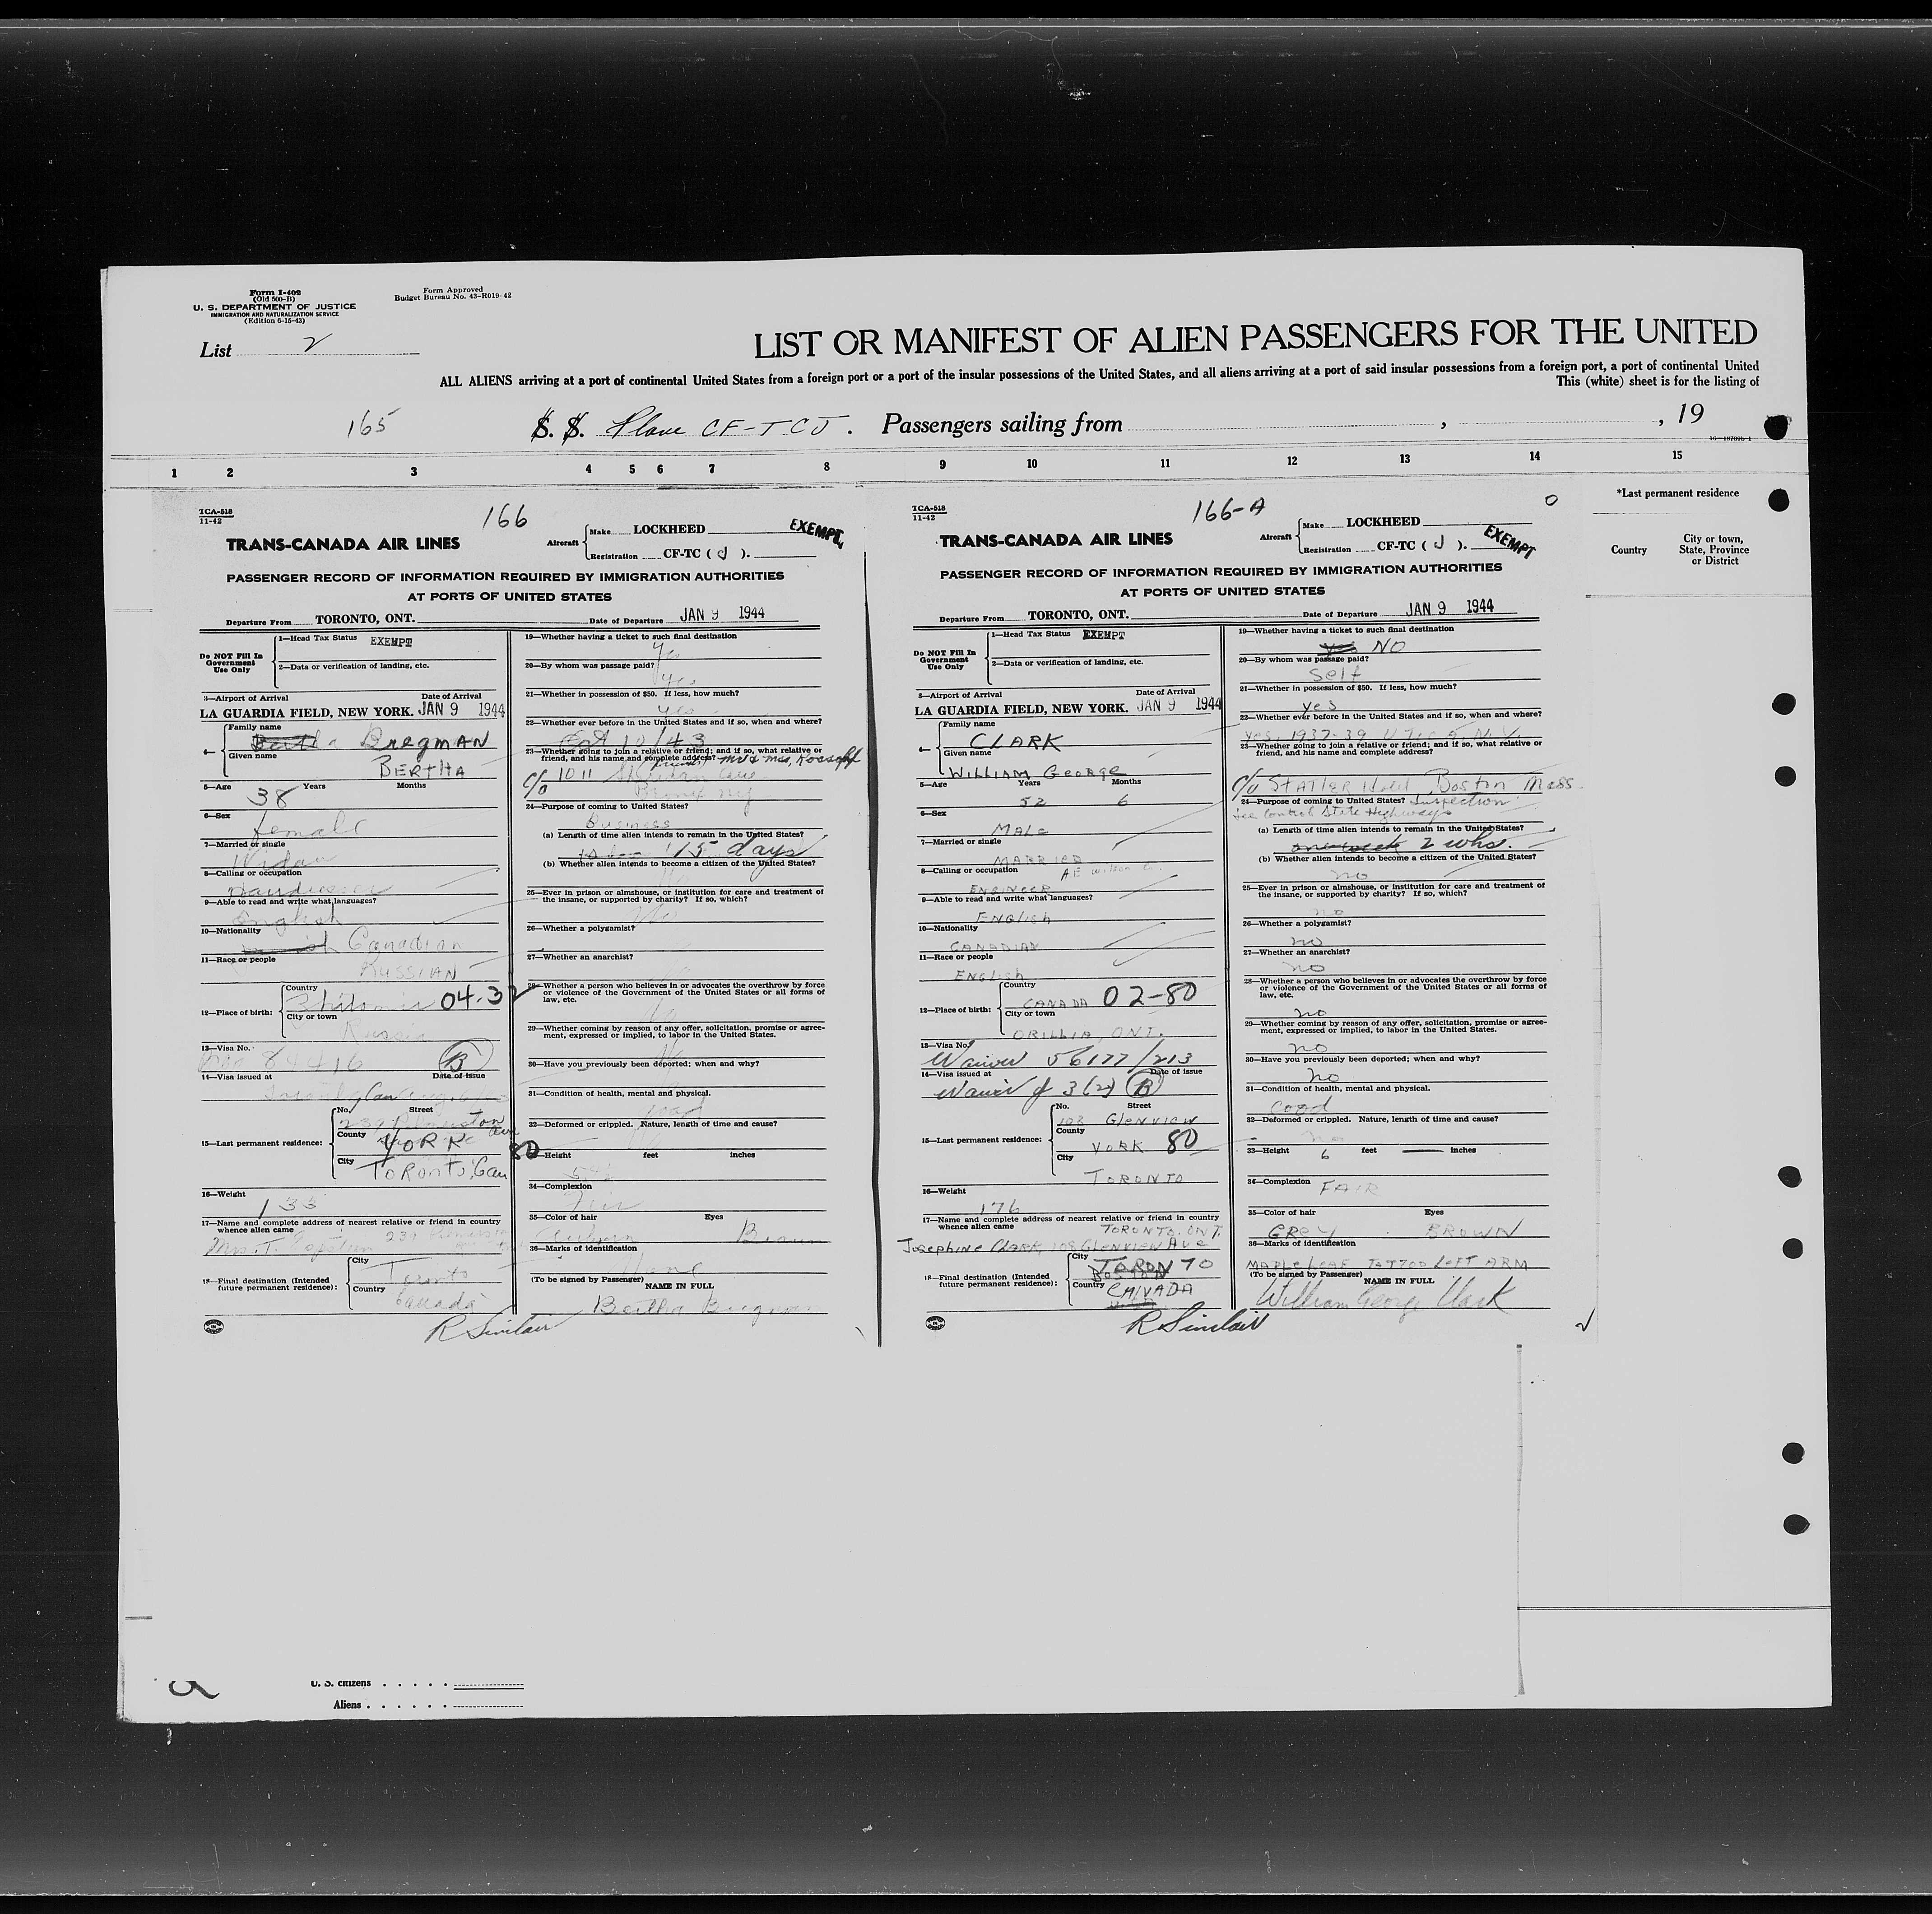 Form I-402
(Old 500-B)
U. S. DEPARTMENT OF JUSTICE
IMMIGRATION AND NATURALIZATION SERVICE
(Edition 6-15-43)
Form Approved
Budget Bureau No. 43-R019-42
List 2
LIST OR MANIFEST OF ALIEN PASSENGERS FOR THE UNITED
ALL ALIENS arriving at a port of continental United States from a foreign port or a port of the insular possessions of the United States, and all aliens arriving at a port of said insular possessions from a foreign port, a port of continental United
This (white) sheet is for the listing of
165 S. S. Plane CF-TCJ. Passengers sailing from , , 19
1 2 3 4 5 6 7 8 9 10 11 12 13 14 15
*Last permanent residence
Country
City or town,
State, Province
or District
TCA-518
11-42
166
TRANS-CANADA AIR LINES
Aircraft
Make LOCKHEED
Registration CF-TC (J).
EXEMPT
PASSENGER RECORD OF INFORMATION REQUIRED BY IMMIGRATION AUTHORITIES
AT PORTS OF UNITED STATES
Departure From TORONTO, ONT. Date of Departure JAN 9 1944
Do NOT Fill In
Government
Use Only
1—Head Tax Status EXEMPT
2—Data or verification of landing, etc.
3—Airport of Arrival Date of Arrival
LA GUARDIA FIELD, NEW YORK. JAN 9 1944
4—
Family name
Bregman
Given name
BERTHA
5—Age Years Months
38
6—Sex
female
7—Married or single
8—Calling or occupation
9—Able to read and write what languages?
English
10—Nationality
Canadian
11—Race or people
RUSSIAN
12—Place of birth:
Country
04-32
City or town
Russia
13—Visa No.
84416 B
14—Visa issued at Date of issue
15—Last permanent residence:
No. Street
County
YORK 80
City
Toronto, Can
16—Weight
135
17—Name and complete address of nearest relative or friend in country
whence alien came
18—Final destination (Intended
future permanent residence):
City
Toronto
Country
Canada
R Sinclair
19—Whether having a ticket to such final destination
Yes
20—By whom was passage paid?
yes
21—Whether in possession of $50. If less, how much?
yes
22—Whether ever before in the United States and if so, when and where?
10/43
23—Whether going to join a relative or friend; and if so, what relative or
friend, and his name and complete address? Mr & Mrs.
c/o 1011
24—Purpose of coming to United States?
Business
(a) Length of time alien intends to remain in the United States?
15 days
(b) Whether alien intends to become a citizen of the United States?
25—Ever in prison or almshouse, or institution for care and treatment of
the insane, or supported by charity? If so, which?
No
26—Whether a polygamist?
27—Whether an anarchist?
28—Whether a person who believes in or advocates the overthrow by force
or violence of the Government of the United States or all forms of
law, etc.
No
29—Whether coming by reason of any offer, solicitation, promise or agree-
ment, expressed or implied, to labor in the United States.
30—Have you previously been deported; when and why?
31—Condition of health, mental and physical.
good
32—Deformed or crippled. Nature, length of time and cause?
33—Height feet inches
34—Complexion
35—Color of hair Eyes
Brown
36—Marks of identification
None
(To be signed by Passenger) NAME IN FULL
Bertha Bregman
TCA-518
11-42
166-A
TRANS-CANADA AIR LINES
Aircraft
Make LOCKHEED
Registration CF-TC (J).
EXEMPT
PASSENGER RECORD OF INFORMATION REQUIRED BY IMMIGRATION AUTHORITIES
AT PORTS OF UNITED STATES
Departure From TORONTO, ONT. Date of Departure JAN 9 1944
Do NOT Fill In
Government
Use Only
1—Head Tax Status EXEMPT
2—Data or verification of landing, etc.
3—Airport of Arrival Date of Arrival
LA GUARDIA FIELD, NEW YORK. JAN 9 1944
4—
Family name
CLARK
Given name
WILLIAM GEORGE
5—Age Years Months
52 6
6—Sex
MALE
7—Married or single
MARRIED
8—Calling or occupation
ENGINEER
9—Able to read and write what languages?
ENGLISH
10—Nationality
CANADIAN
11—Race or people
ENGLISH
12—Place of birth:
Country
CANADA 02-80
City or town
ORILLIA, ONT.
13—Visa No.
Waiver 56177/213
14—Visa issued at Date of issue
B
15—Last permanent residence:
No. Street
108 GLENVIEW
County
YORK 80
City
TORONTO
16—Weight
176
17—Name and complete address of nearest relative or friend in country
whence alien came TORONTO, ONT.
Josephine Clark, 108 Glenview Ave
18—Final destination (Intended
future permanent residence):
City
TORONTO
BOSTON
Country
CANADA
R Sinclair
19—Whether having a ticket to such final destination
yes NO
20—By whom was passage paid?
Self
21—Whether in possession of $50. If less, how much?
yes
22—Whether ever before in the United States and if so, when and where?
yes, 1937-39
23—Whether going to join a relative or friend; and if so, what relative or
friend, and his name and complete address?
c/o STATLER Hotel Boston Mass
24—Purpose of coming to United States? Inspection
State Highways
(a) Length of time alien intends to remain in the United States?
one week 2 wks.
(b) Whether alien intends to become a citizen of the United States?
no
25—Ever in prison or almshouse, or institution for care and treatment of
the insane, or supported by charity? If so, which?
no
26—Whether a polygamist?
no
27—Whether an anarchist?
no
28—Whether a person who believes in or advocates the overthrow by force
or violence of the Government of the United States or all forms of
law, etc.
no
29—Whether coming by reason of any offer, solicitation, promise or agree-
ment, expressed or implied, to labor in the United States.
no
30—Have you previously been deported; when and why?
no
31—Condition of health, mental and physical.
Good
32—Deformed or crippled. Nature, length of time and cause?
no
33—Height 6 feet — inches
34—Complexion FAIR
35—Color of hair Eyes
GREY BROWN
36—Marks of identification
MAPLE LEAF TATTOO LEFT ARM
(To be signed by Passenger) NAME IN FULL
William George Clark
U. S. citizens
Aliens